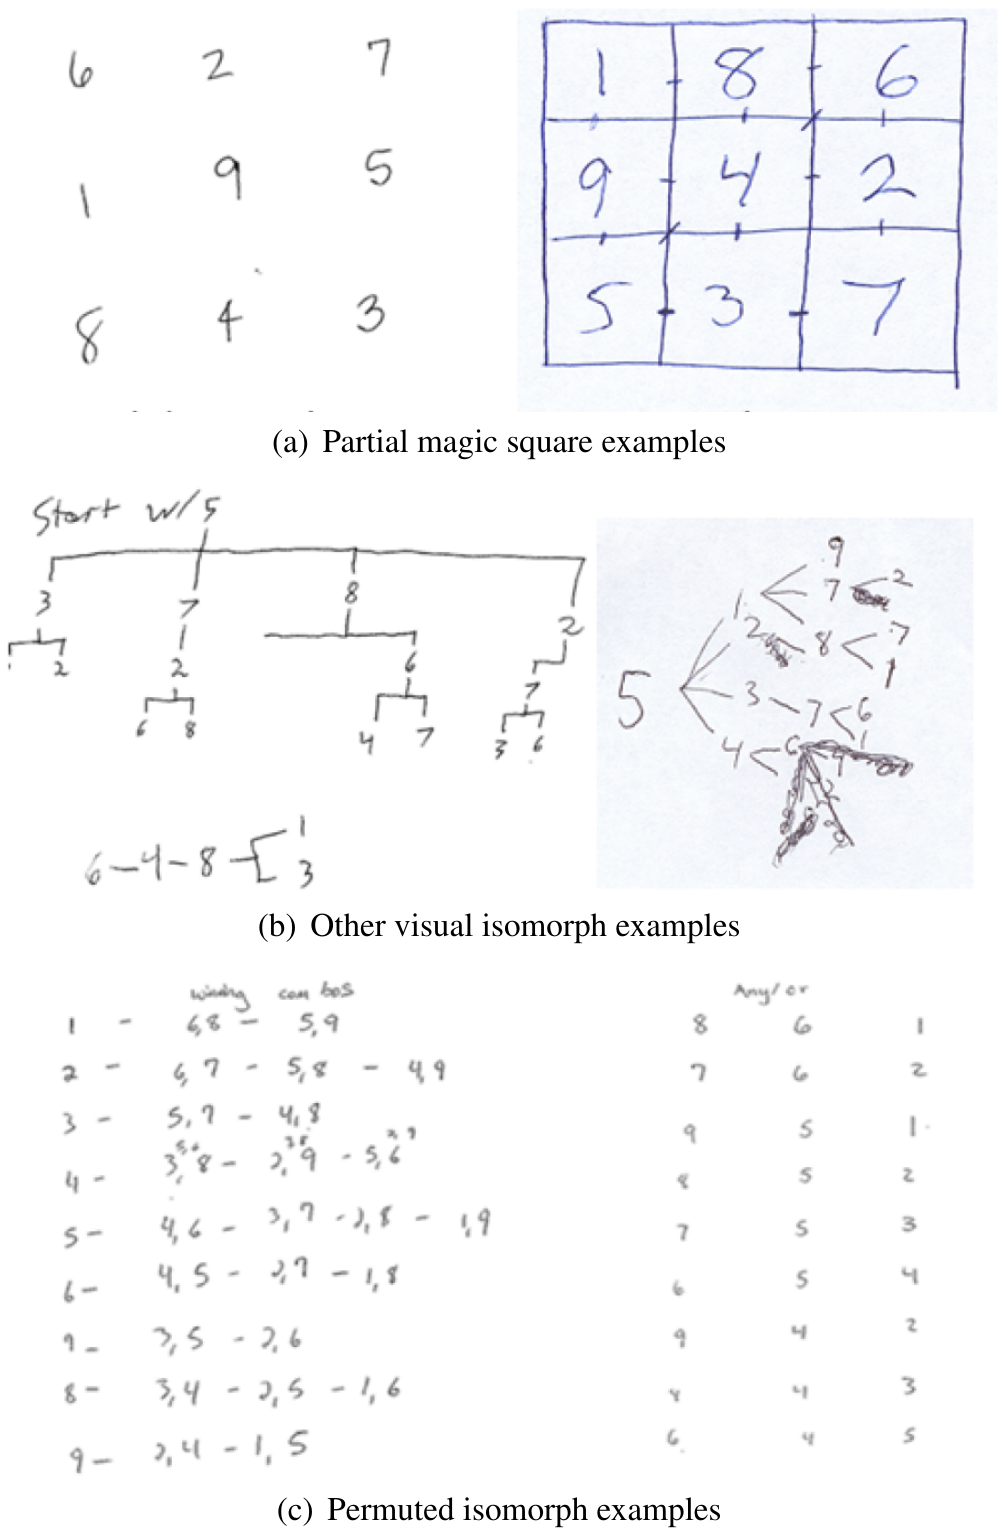 6 2 7
1 9 5
8 4 3
1 8 6
9 4 2
5 3 7
(a) Partial magic square examples
Start w/ 5
3 7 8 2
1
2 2 6 7
6 8 4 7 3 6
6-4-8 1
3
9
1 7 2
2 8 7
1
5
3 7 6
4 6 1
(b) Other visual isomorph examples
winning com bos
1 - 6,8 - 5,9
2 - 6,7 - 5,8 - 4,9
3 - 5,7 - 4,8
4 - 3,8 - 2,9 - 5,6
5 - 4,6 - 3,7 - 2,8 - 1,9
6 - 4,5 - 2,7 - 1,8
7 - 3,5 - 2,6
8 - 3,4 - 2,5 - 1,6
9 - 2,4 - 1,5
Any/or
8 6 1
7 6 2
9 5 1
8 5 2
7 5 3
6 5 4
9 4 2
8 4 3
6 4 5
(c) Permuted isomorph examples